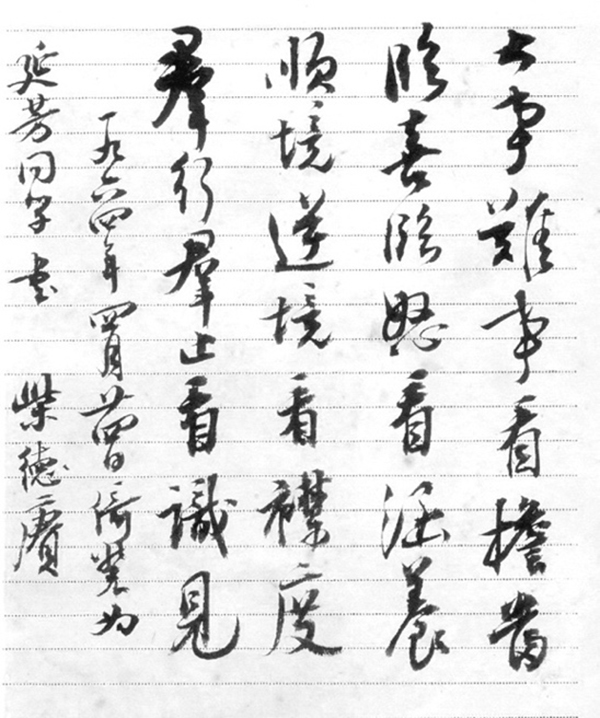 大事難事看擔當
臨喜臨怒看涵養
順境逆境看襟度
羣行羣止看識見
一九六四年四月廿四日倚裝为
延芳同学書 柴德賡